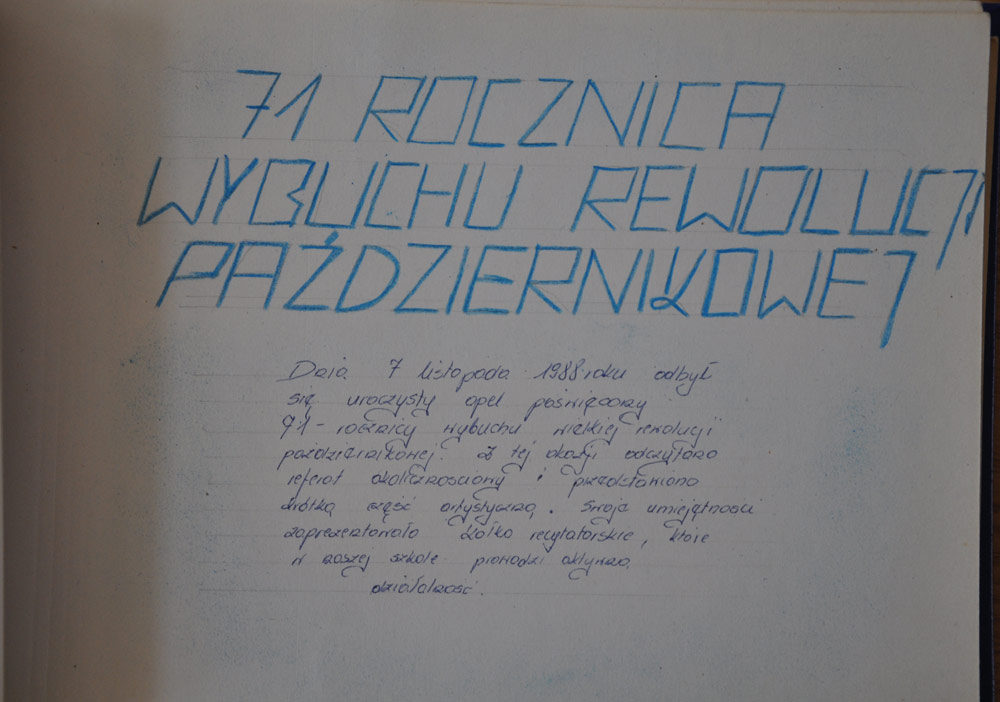 71 ROCZNICA
WYBUCHU REWOLUCJI
PAŹDZIERNIKOWEJ
Dnia 7 listopada 1988 roku odbył
się uroczysty apel poświęcony
71 - rocznicy wybuchu wielkiej rewolucji
październikowej. Z tej okazji odczytano
referat okolicznościowy i przedstawiono
krótką część artystyczną. Swoje umiejętności
zaprezentowało kółko recytatorskie, które
w naszej szkole prowadzi aktywną
działalność.